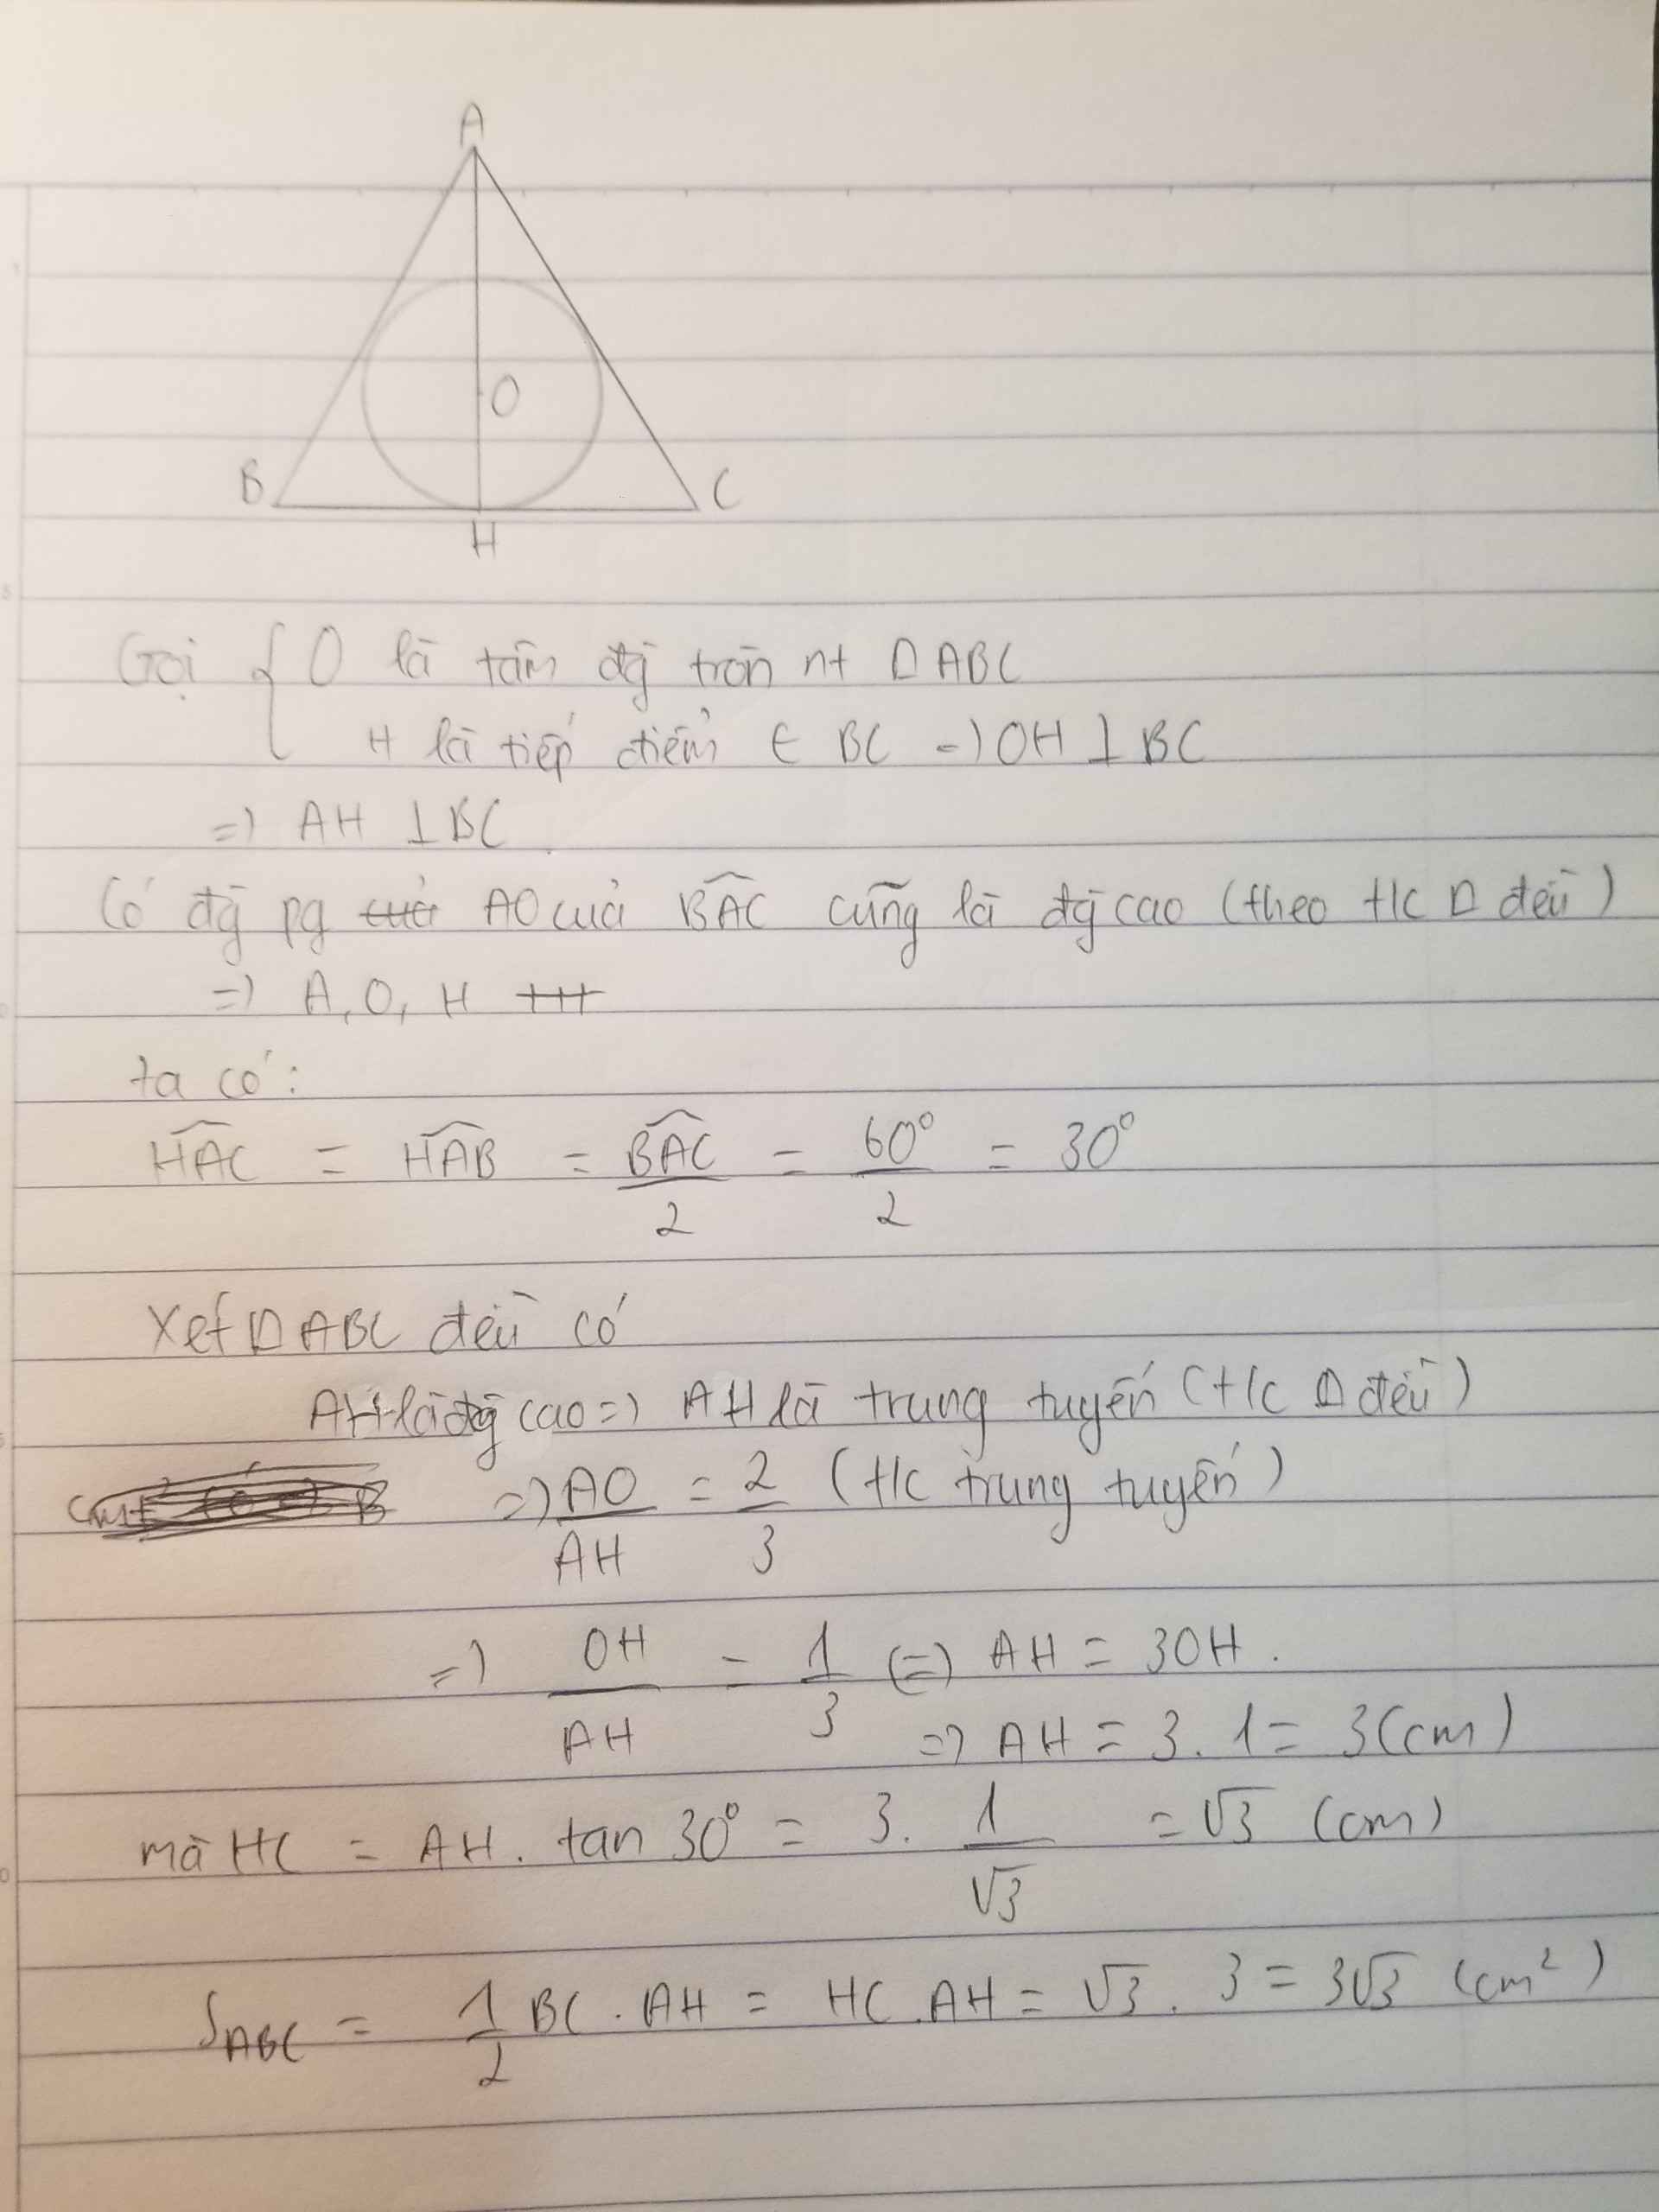 A
O
B
C
H
Gọi { O là tâm đg tròn nt Δ ABC
H là tiếp điểm ∈ BC => OH ⊥ BC
=> AH ⊥ BC
Có đg pg của AO của BAC cũng là đg cao (theo t/c Δ đều)
=> A, O, H
ta có:
HAC = HAB = BAC/2 = 60°/2 = 30°
Xét Δ ABC đều có
AH là đg cao => AH là trung tuyến (t/c Δ đều)
=> AO/AH = 2/3 (t/c trung tuyến)
=> OH/AH = 1/3 (=) AH = 3OH.
=> AH = 3. 1 = 3(cm)
mà HC = AH. tan 30° = 3. 1/√3 = √3 (cm)
S_ABC = 1/2 BC . AH = HC . AH = √3 . 3 = 3√3 (cm²)